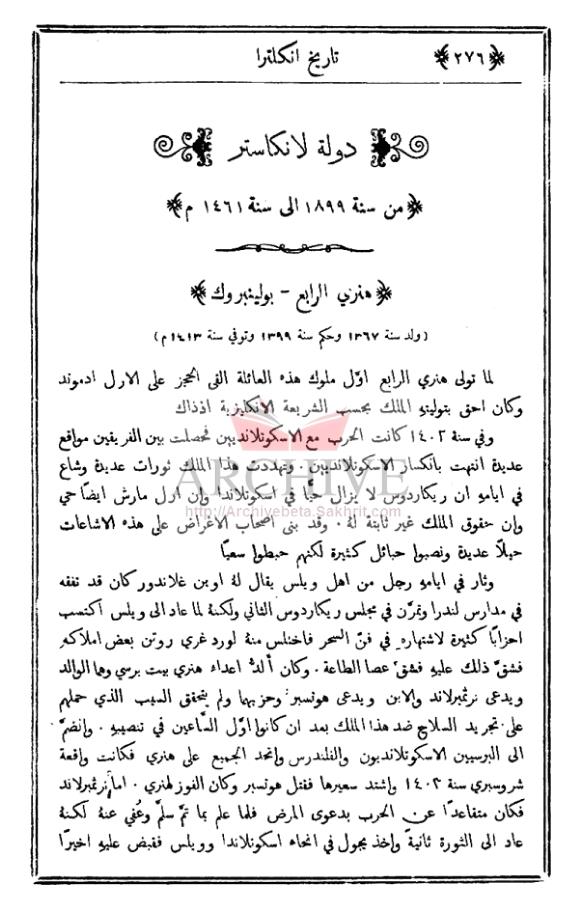 ﴿٢٧٦﴾ تاريخ انكلترا
دولة لانكاستر
﴿من سنة ١٨٩٩ الى سنة ١٤٦١ م﴾
﴿هنري الرابع - بولينبروك﴾
(ولد سنة ١٣٦٧ وحكم سنة ١٣٩٩ وتوفي سنة ١٤١٣ م)
لما تولى هنري الرابع اوّل ملوك هذه العائلة القى الحجز على الارل ادموند
وكان احق بتوليهِ الملك بحسب الشريعة الانكليزية اذذاك
وفي سنة ١٤٠٢ كانت الحرب مع الاسكوتلانديين فحصلت بين الفريقين مواقع
عديدة انتهت بانكسار الاسكوتلانديين . وتهددت هذا الملك ثورات عديدة وشاع
في ايامهِ ان ريكاردوس لا يزال حيًّا في اسكوتلاندا وإن ارل مارش ايضًا حي
وإن حقوق الملك غير ثابتة لهُ . وقد بنى اصحاب الاغراض على هذه الاشاعات
حيلًا عديدة ونصبوا حبائل كثيرة لكنهم حبطوا سعيًا
وثار في ايامهِ رجل من اهل ويلس يقال لهُ اوين غلاندور كان قد تفقه
في مدارس لندرا وتمرّن في مجلس ريكاردوس الثاني ولكنهُ لما عاد الى ويلس اكتسب
احزابًا كثيرة لاشتهارهِ في فنّ السحر فاختلس منهُ لورد غري روتن بعض املاكهِ
فشقّ ذلك عليهِ فشقّ عصا الطاعة . وكان ألدُّ اعداء هنري بيت برسي وهما الوالد
ويدعى نرثمبرلاند والابن ويدعى هوتسبر وحزبهما ولم يتحقق السبب الذي حملهم
على تجريد السلاح ضد هذا الملك بعد ان كانوا اوّل السّاعين في تنصيبهِ . وانضمّ
الى البرسيين الاسكوتلانديون والفلندرس واتحد الجميع على هنري فكانت واقعة
شروسبري سنة ١٤٠٣ واشتد سعيرها فقتل هوتسبر وكان الفوز لهنري . اما نرثمبرلاند
فكان متقاعدًا عن الحرب بدعوى المرض فلما علم بما تمّ سلّم وعُفي عنهُ لكنهُ
عاد الى الثورة ثانيةً وأخذ يجول في انحاء اسكوتلاندا وويلس فقبض عليهِ اخيرًا
ARCHIVE
http://Archivebeta.Sakhrit.com